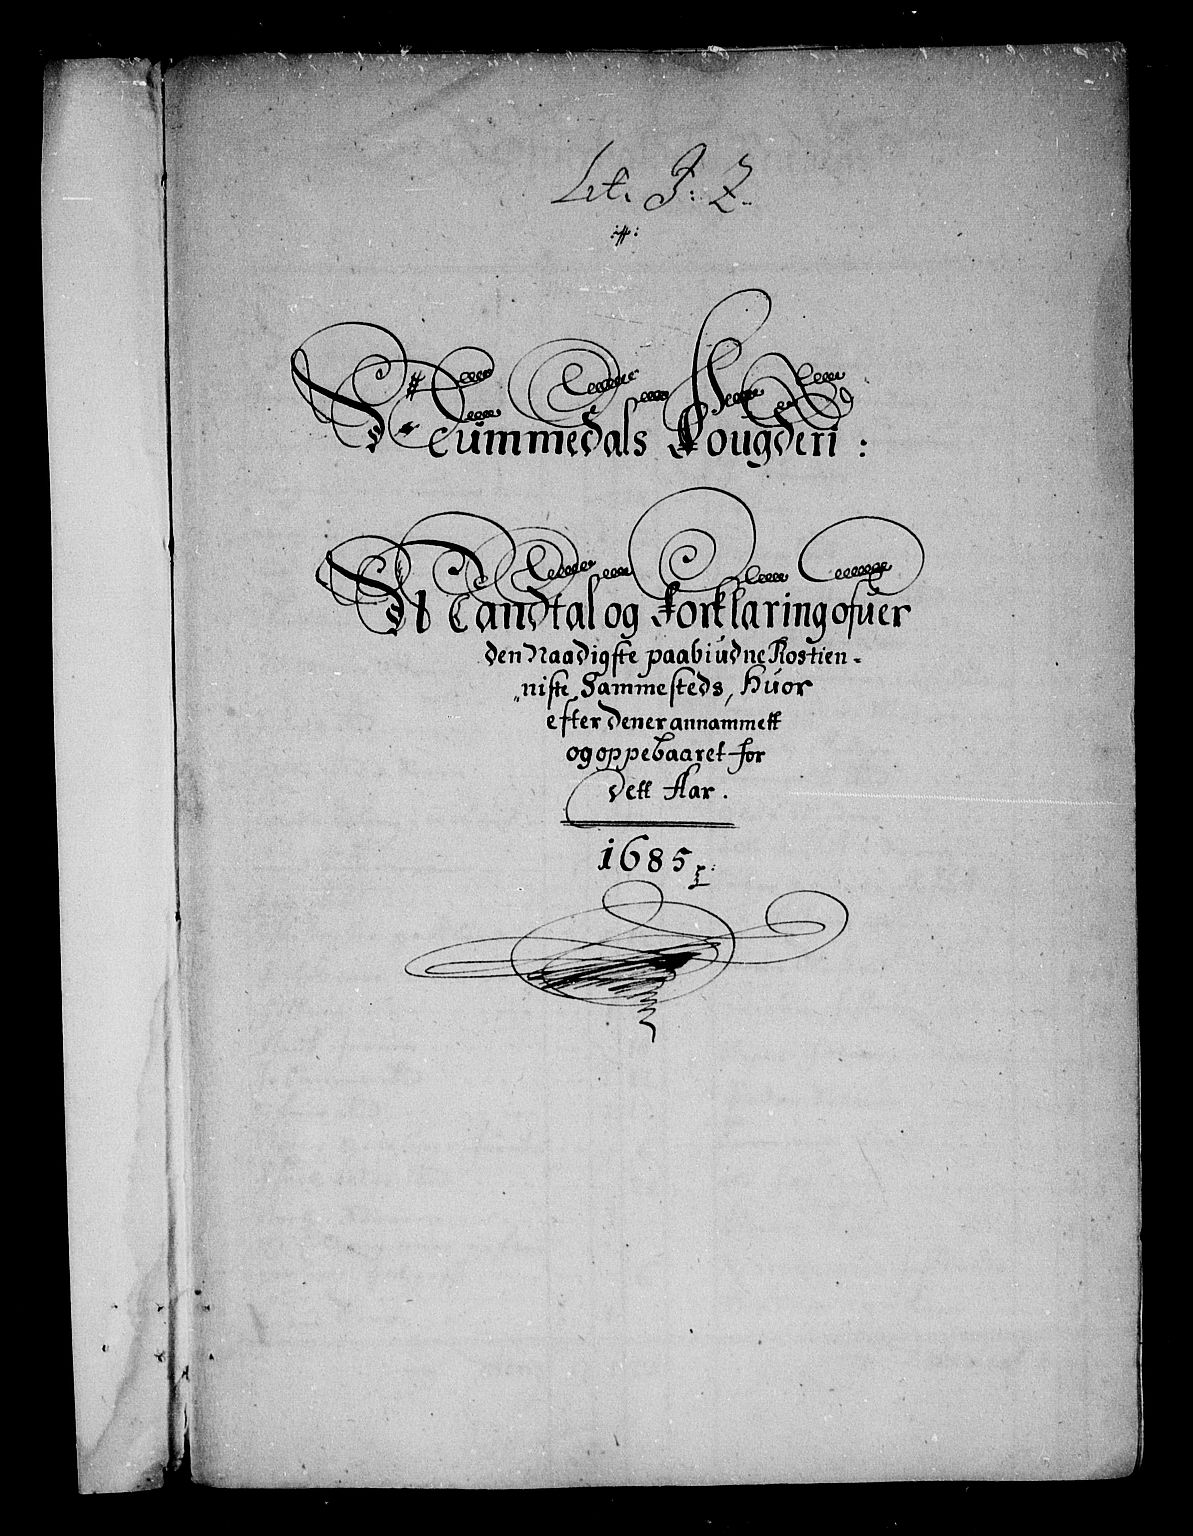 Lit. J: Z.
:#:
Nummedals Fougderi :
Mandtal og Forklaring ofuer
den Naadigste paabiudne Rostien-
„niste Sammesteds, Huor
efter dener annammett
og oppebaaret for
dett Aar.
1685